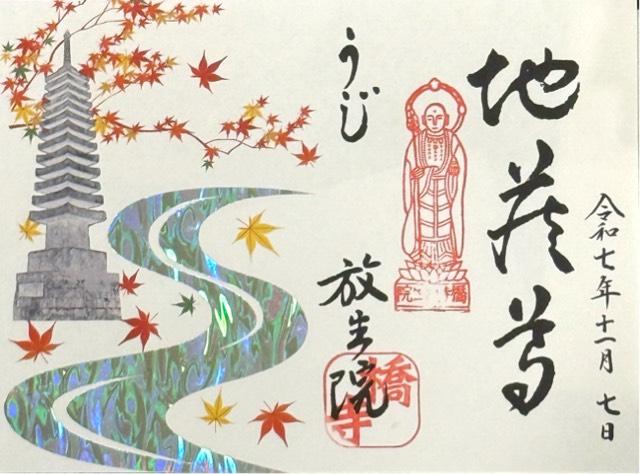 令和七年十一月七日
地蔵尊
うじ
放生院
橋寺